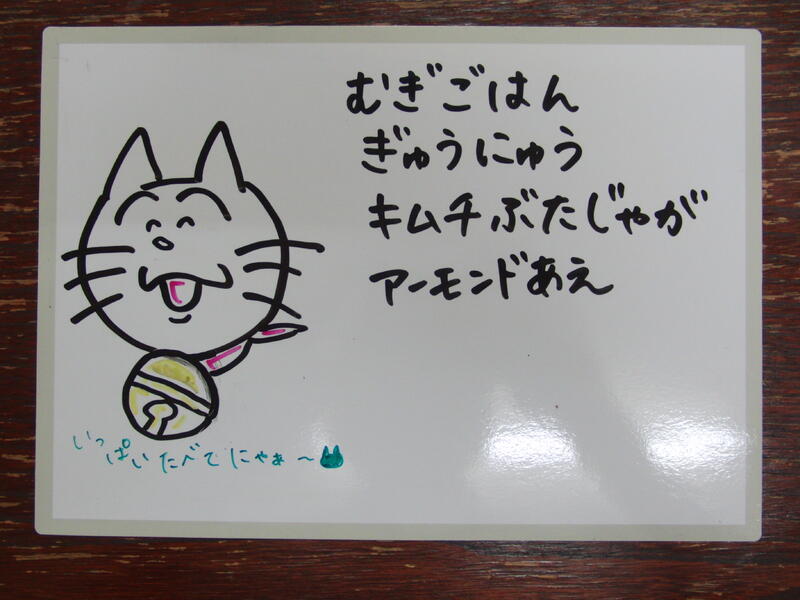 むぎごはん
ぎゅうにゅう
キムチぶたじゃが
アーモンドあえ
いっぱいたべてにゃぁ～